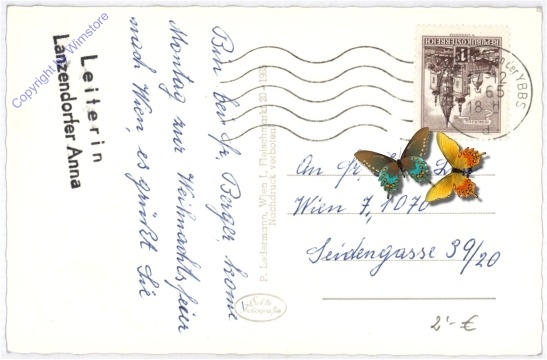 Bin bei Fr. Berger, kome
Montag zur Weihnachtsfeier
nach Wien, es grüßt Sie
Leiterin
Lanzendorfer Anna
P. Ledermann, Wien I, Fleischmarkt 20 - 1965
Nachdruck verboten
REPUBLIK ÖSTERREICH
YBBS
65
18
An Fr.
Wien 7, 1070
Seidengasse 39/20
2'- €
Copyright by Wimstore